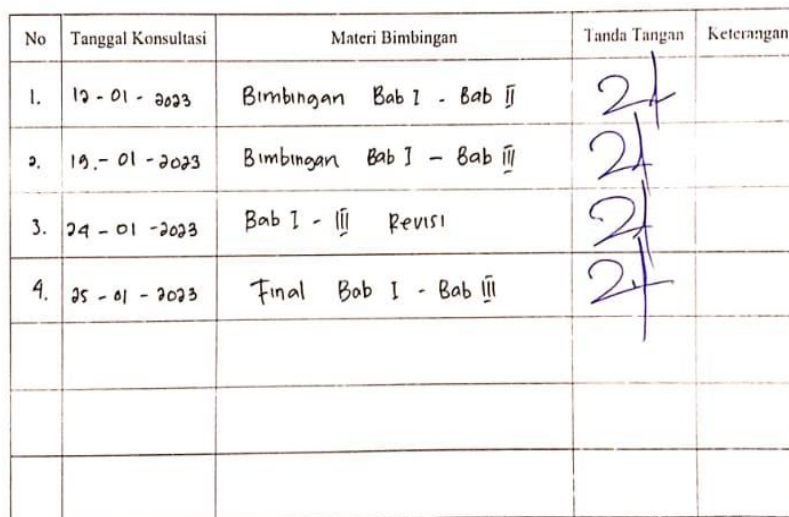 No Tanggal Konsultasi Materi Bimbingan Tanda Tangan Keterangan
1. 12 - 01 - 2023 Bimbingan Bab I - Bab II
2. 19 - 01 - 2023 Bimbingan Bab I - Bab III
3. 24 - 01 - 2023 Bab I - III Revisi
4. 25 - 01 - 2023 Final Bab I - Bab III